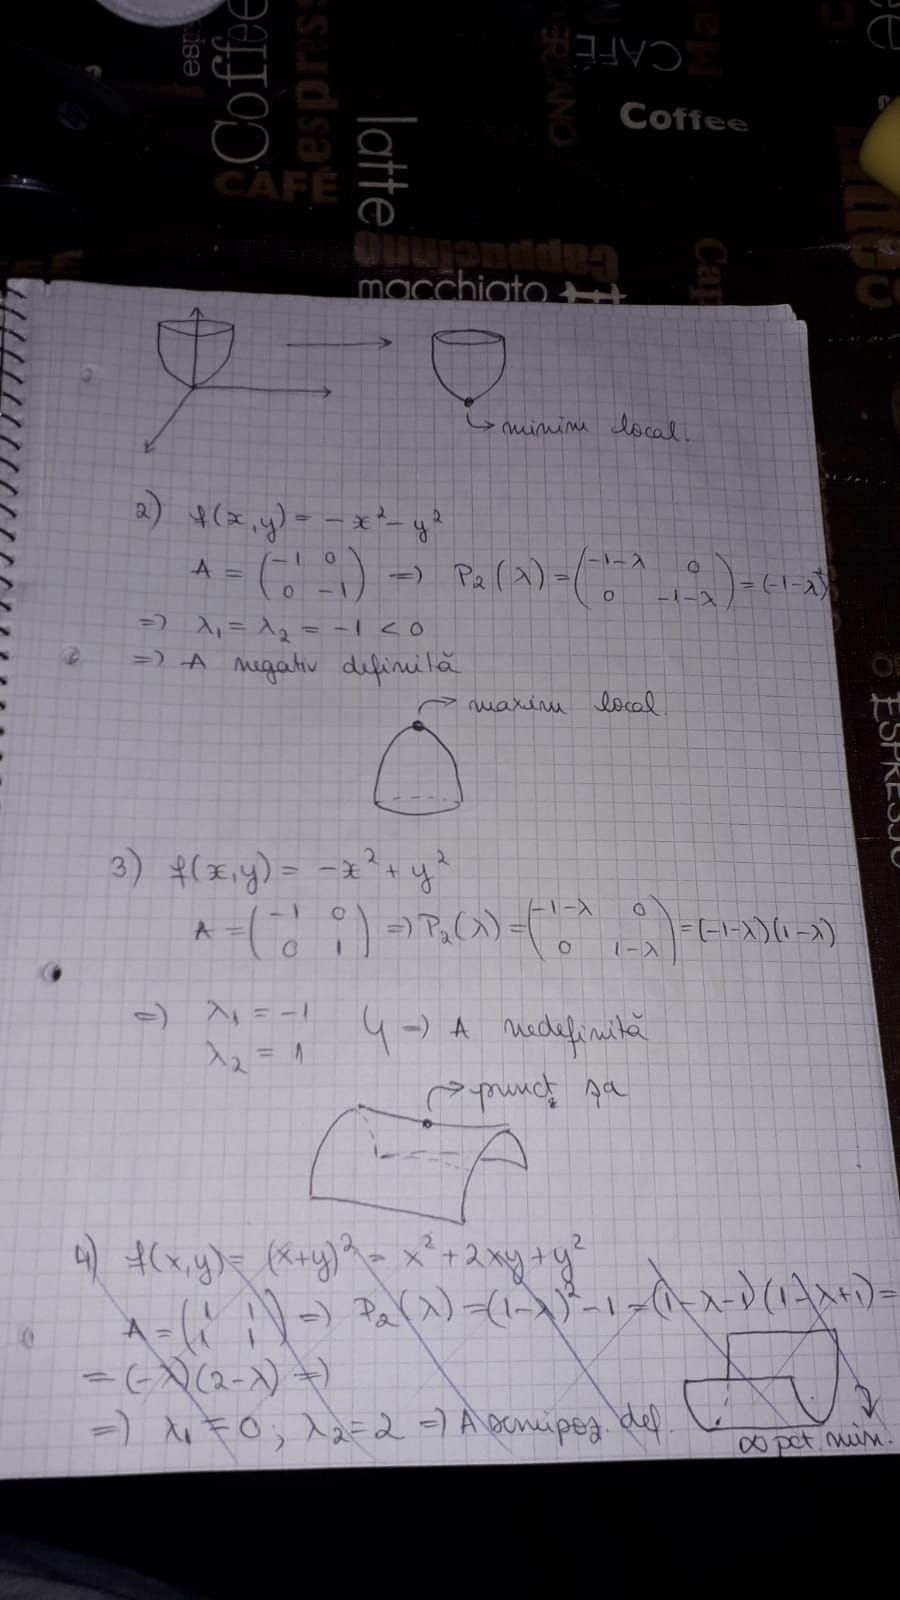 esp
Coffee
espres
CAFÉ
latte
Cappuccino
macchiato
CAFÉ
Coffee
ESPRESSO
→ minim local.
2) f(x,y) = -x² - y²
A = (-1 0 / 0 -1) => P₂(λ) = (-1-λ 0 / 0 -1-λ) = (-1-λ)²
=> λ₁ = λ₂ = -1 < 0
=> A negativ definită
→ maxim local.
3) f(x,y) = -x² + y²
A = (-1 0 / 0 1) => P₂(λ) = (-1-λ 0 / 0 1-λ) = (-1-λ)(1-λ)
=> λ₁ = -1
λ₂ = 1 } => A nedefinită
→ punct șa
4) f(x,y) = (x+y)² = x² + 2xy + y²
A = (1 1 / 1 1) => P₂(λ) = (1-λ)² - 1 = (1-λ-1)(1-λ+1) =
= (-λ)(2-λ) =>
=> λ₁ = 0 ; λ₂ = 2 => A semipoz. def.
∞ pct. min.